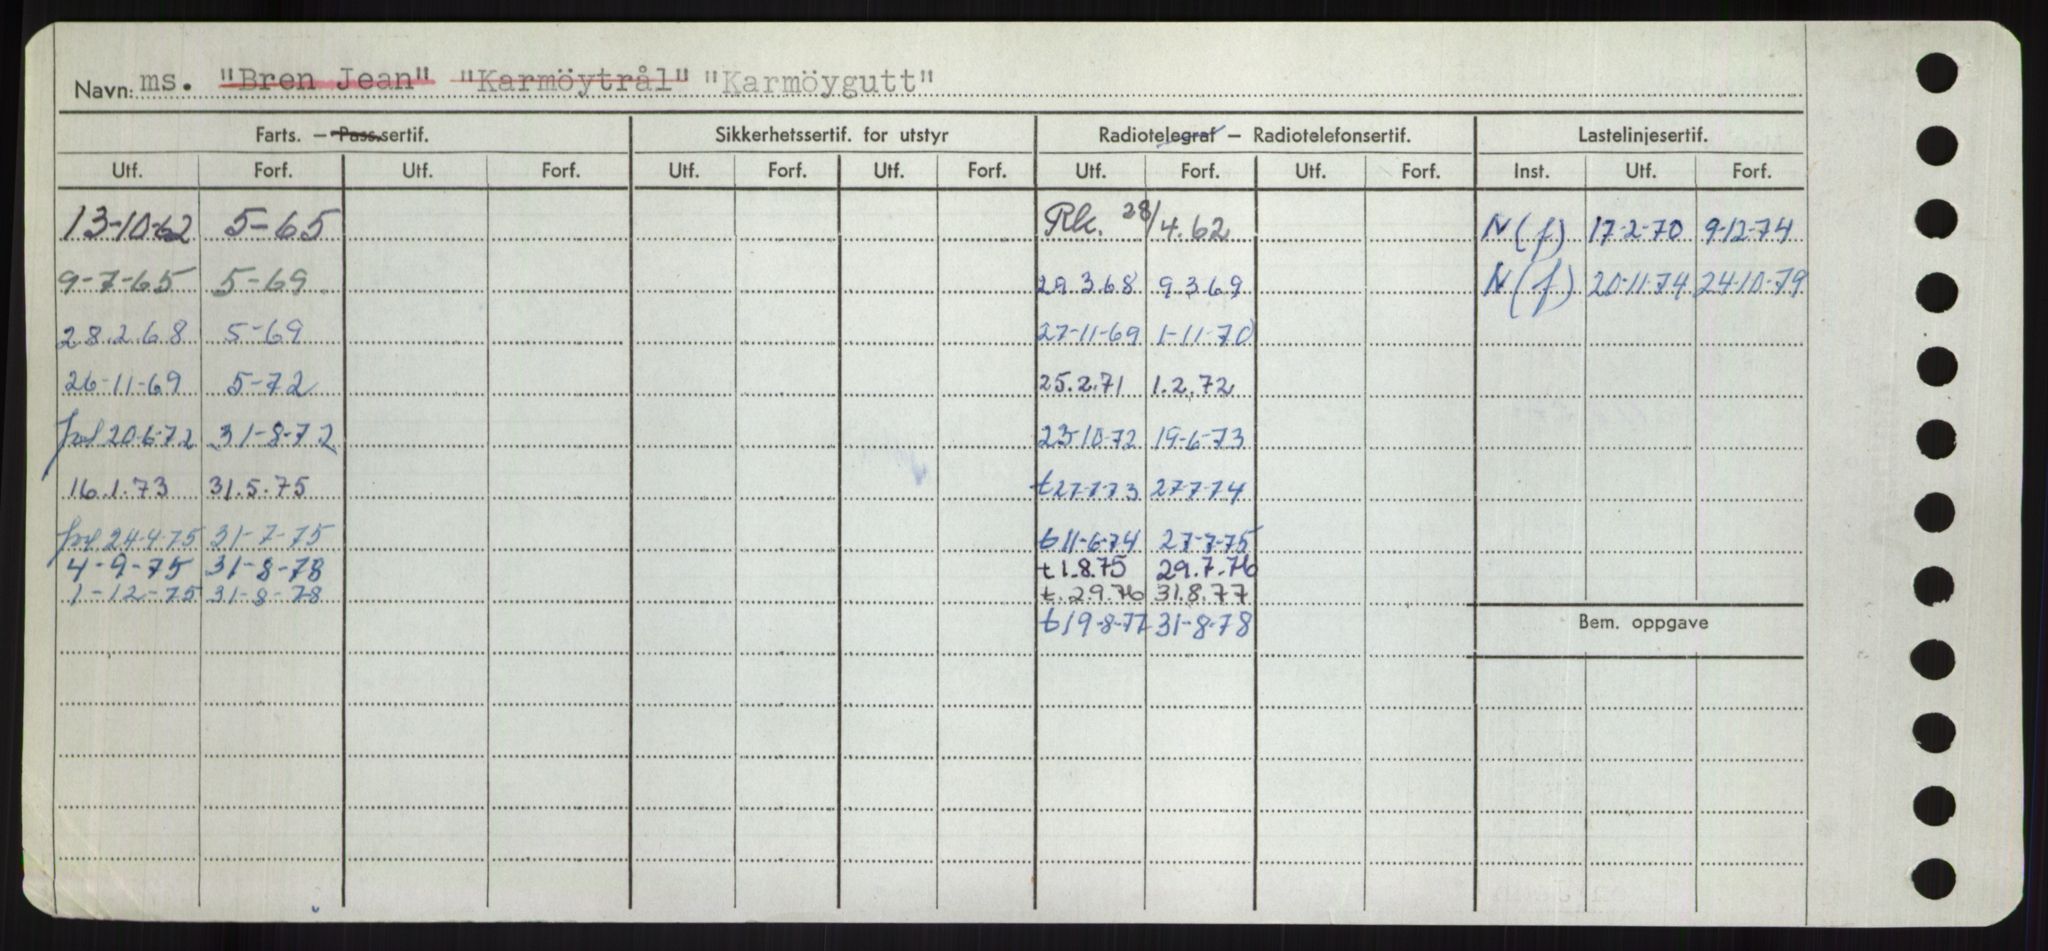 Navn: ms. "Bren Jean" "Karmöytrål" "Karmöygutt"
Farts. — Pass.sertif. Sikkerhetssertif. for utstyr Radiotelegraf — Radiotelefonsertif. Lastelinjesertif.
Utf. Forf. Utf. Forf. Utf. Forf. Utf. Forf. Utf. Forf. Utf. Forf. Inst. Utf. Forf.
13-10-62 5-65 Rk. 28/4.62 N(f) 17-2-70 9-12-74
9-7-65 5-69 29 3 68 9 3 69 N(f) 20-11-74 24-10-79
28.2.68 5-69 27-11-69 1-11-70
26-11-69 5-72 25.2.71 1.2.72
20-6-72 31-8-72 23-10-72 19-6-73
16.1.73 31.5.75 t 27-7-73 27-7-74
24-4-75 31-7-75 t 11-6-74 27-7-75
4-9-75 31-8-78 t 1.8.75 29.7.76
1-12-75 31-8-78 t. 2.9.76 31.8.77
t 19-8-77 31-8-78
Bem. oppgave